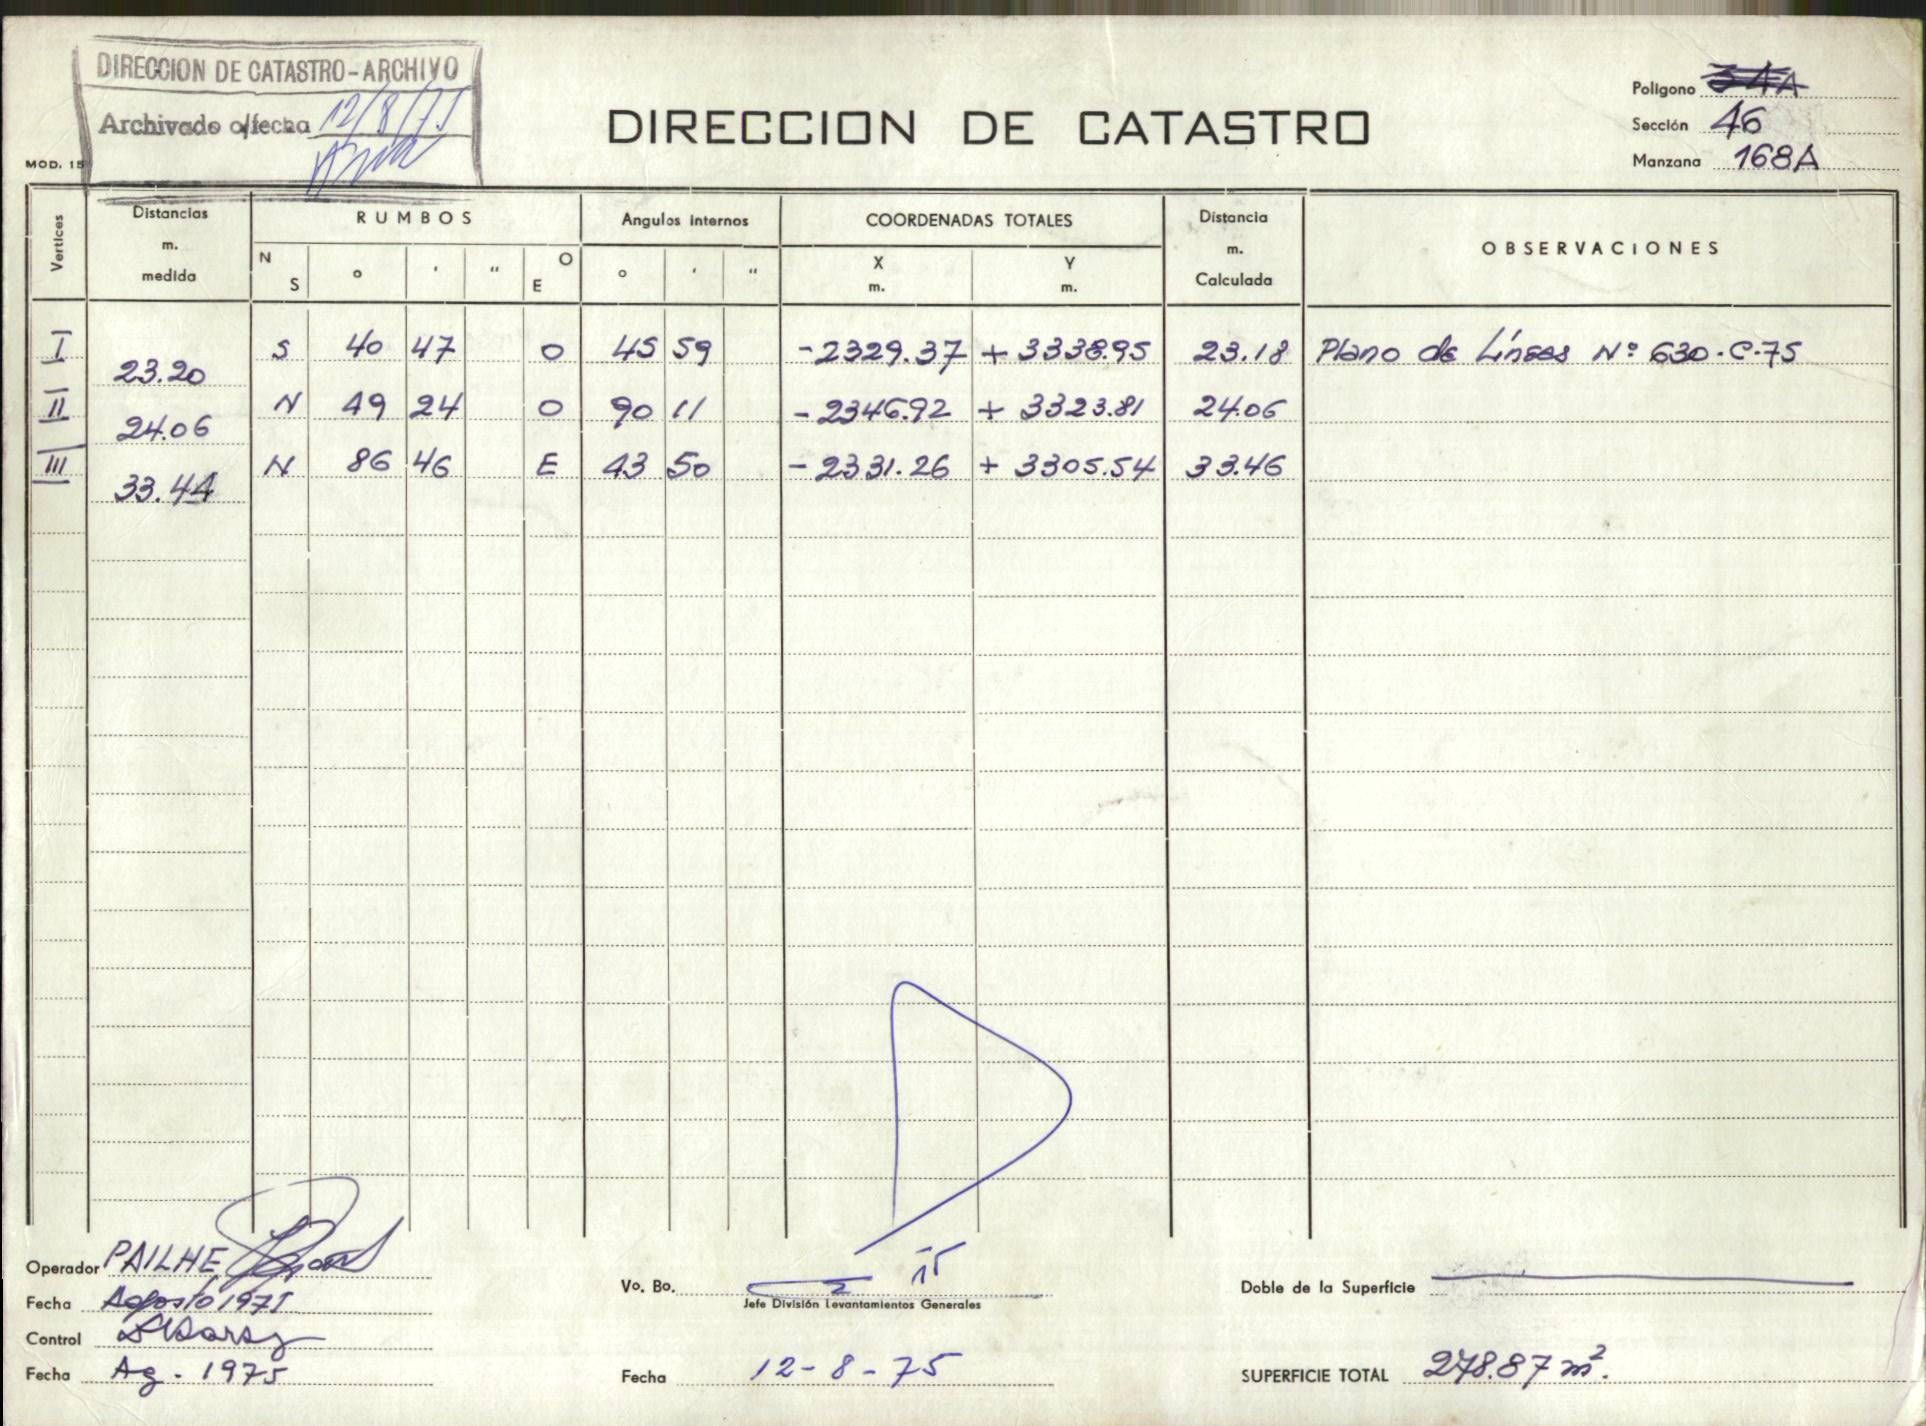 DIRECCION DE CATASTRO-ARCHIVO
Archivado c/fecha 12/8/75
MOD. 15
DIRECCION DE CATASTRO
Poligono
Sección 46
Manzana 168A
Vertices Distancias m. medida RUMBOS Angulos internos COORDENADAS TOTALES Distancia m. Calculada OBSERVACIONES
N S ° ' " O E ° ' " X m. Y m.
I S 40 47 O 45 59 -2329.37 + 3338.95 23.18 Plano de Líneas Nº 630-C-75
23.20
II N 49 24 O 90 11 -2346.92 + 3323.81 24.06
24.06
III N 86 46 E 43 50 -2331.26 + 3305.54 33.46
33.44
Operador PAILHE
Fecha Agosto 1975
Control
Fecha Ag. 1975
Vo. Bo.
Jefe División Levantamientos Generales
Fecha 12-8-75
Doble de la Superficie
SUPERFICIE TOTAL 278.87 m².